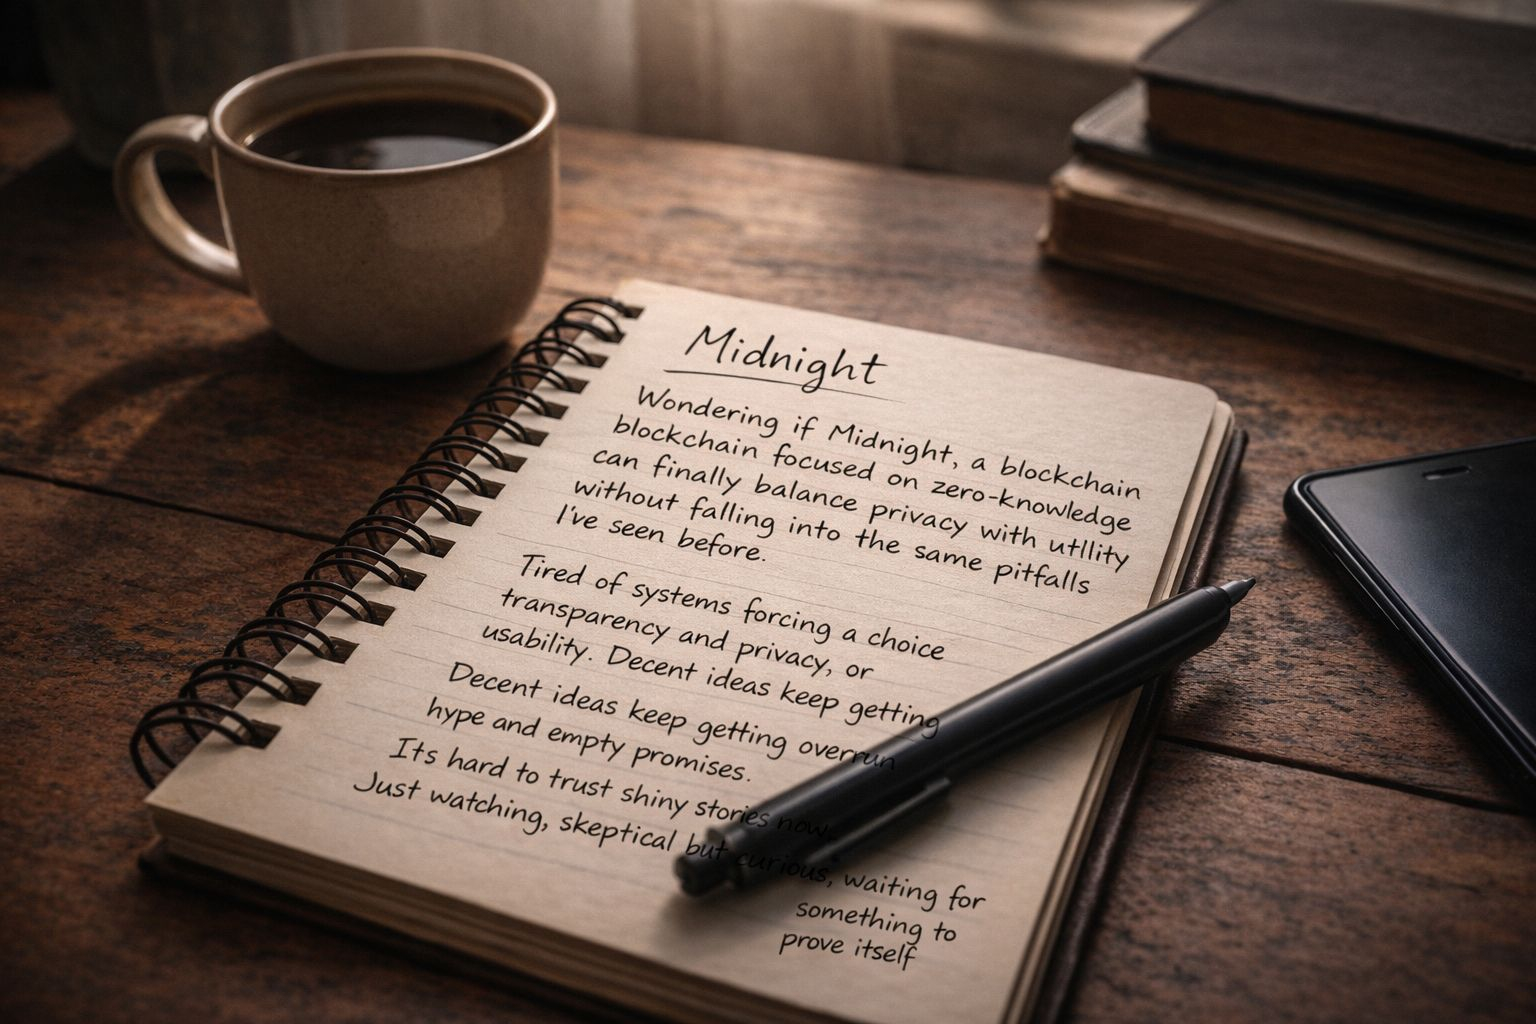 Midnight
Wondering if Midnight, a blockchain
blockchain focused on zero-knowledge
can finally balance privacy with utllity
without falling into the same pitfalls
I've seen before.
Tired of systems forcing a choice
transparency and privacy, or
usability. Decent ideas keep getting
Decent ideas keep getting overrun
hype and empty promises.
Its hard to trust shiny stories now.
Just watching, skeptical but curious, waiting for
something to
prove itself